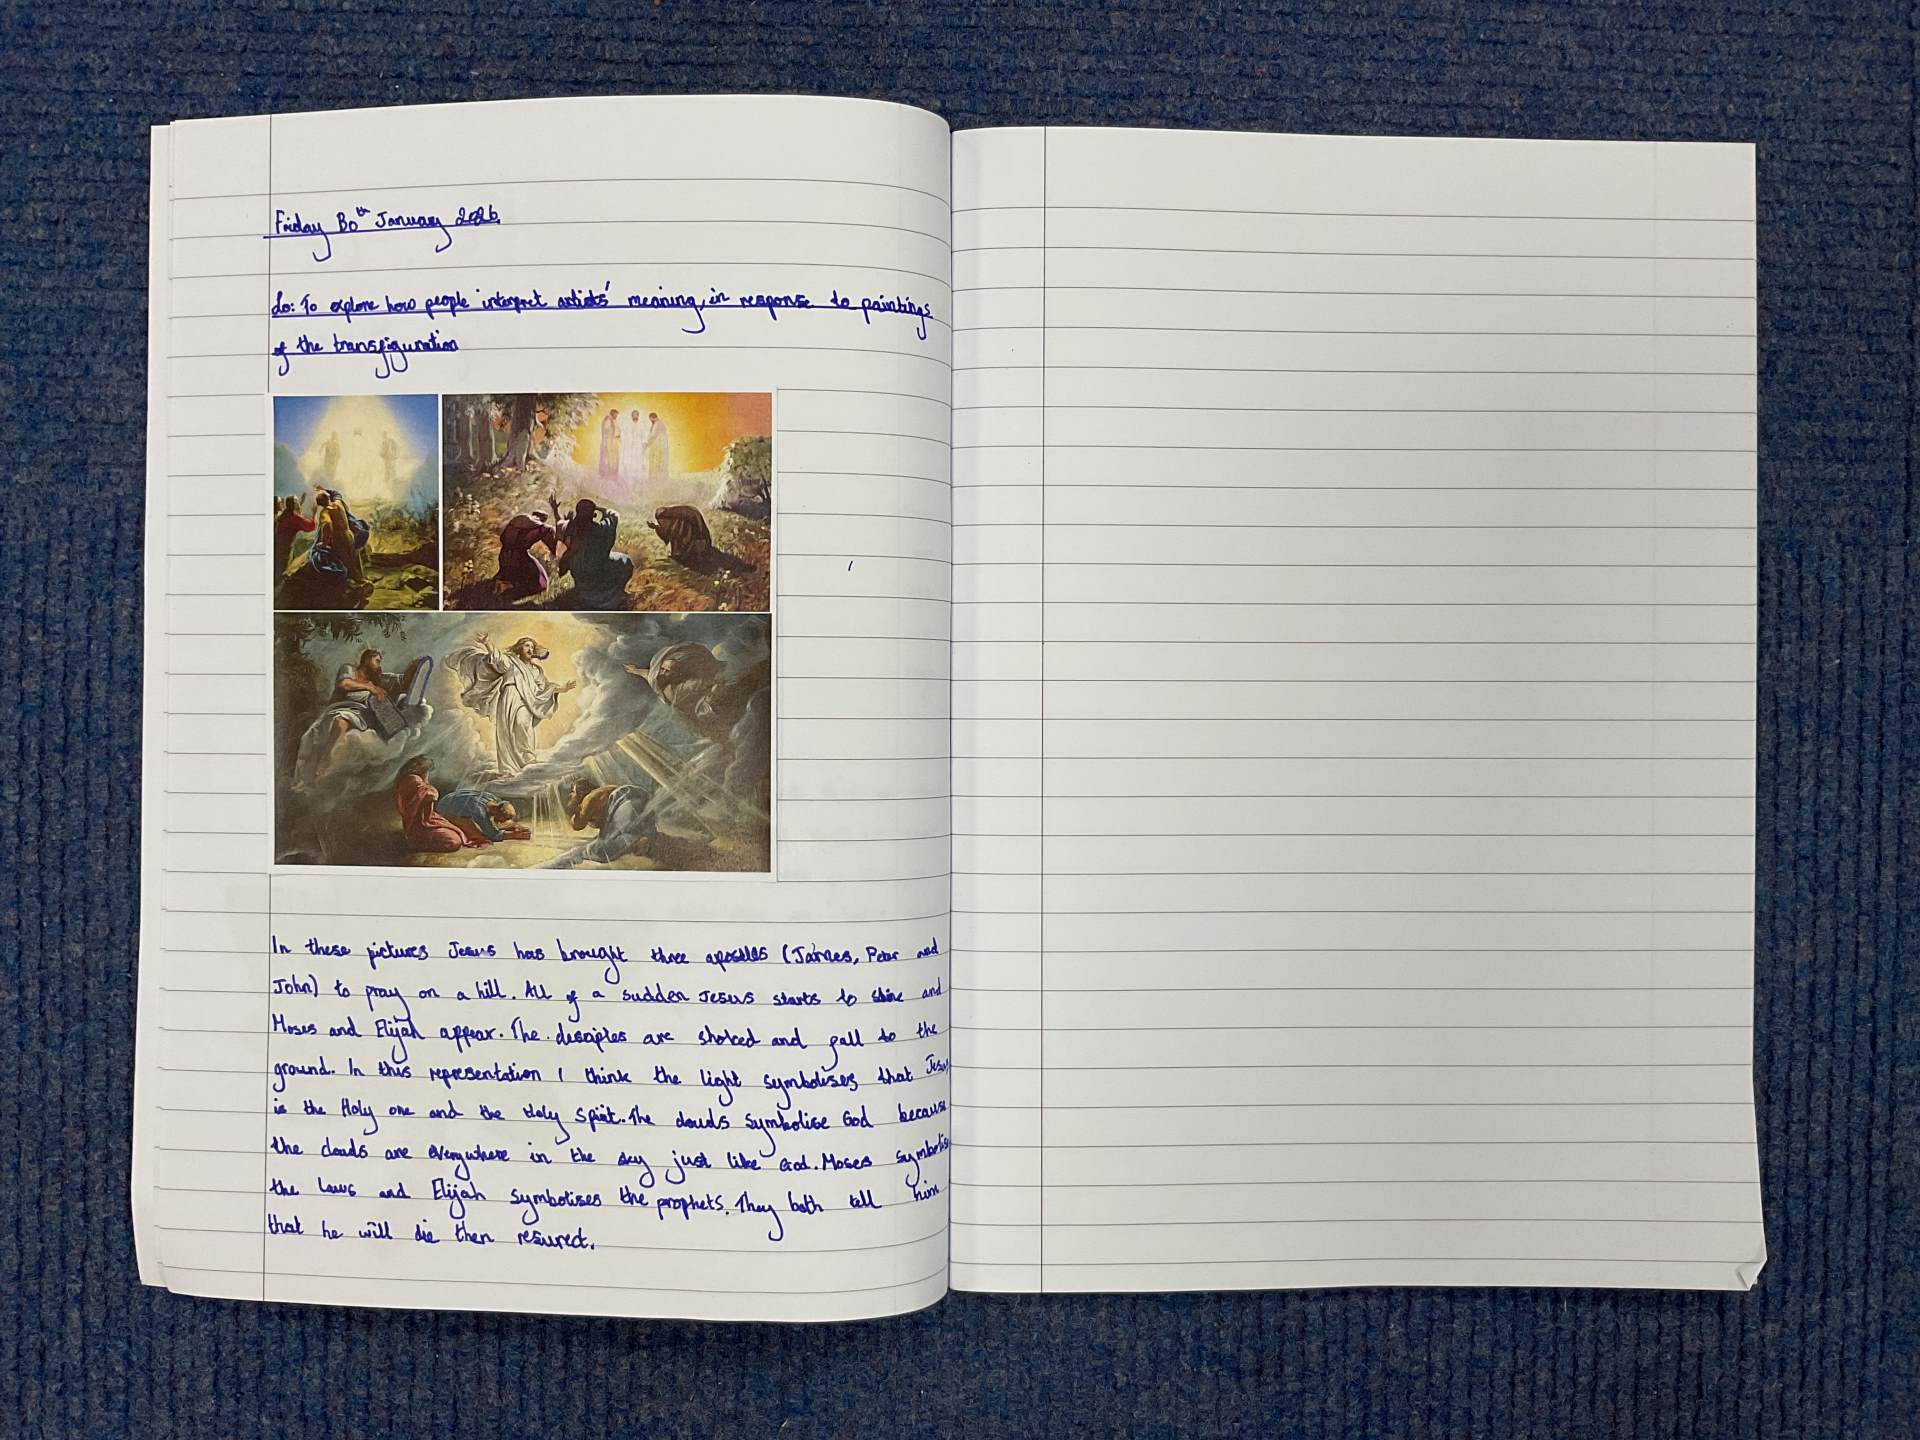 Friday 30th January 2026
Lo: To explore how people interpret artists' meaning, in response to paintings
of the transfiguration
In these pictures Jesus has brought three apostles (James, Peter and
John) to pray on a hill. All of a sudden Jesus starts to shine and
Moses and Elijah appear. The disciples are shoked and fall to the
ground. In this representation I think the light symbolises that Jesus
is the Holy one and the Holy Spirit. The clouds symbolise God because
the clouds are everywhere in the sky just like God. Moses symbolis
the laws and Elijah symbolises the prophets. They both tell him
that he will die then resurect.